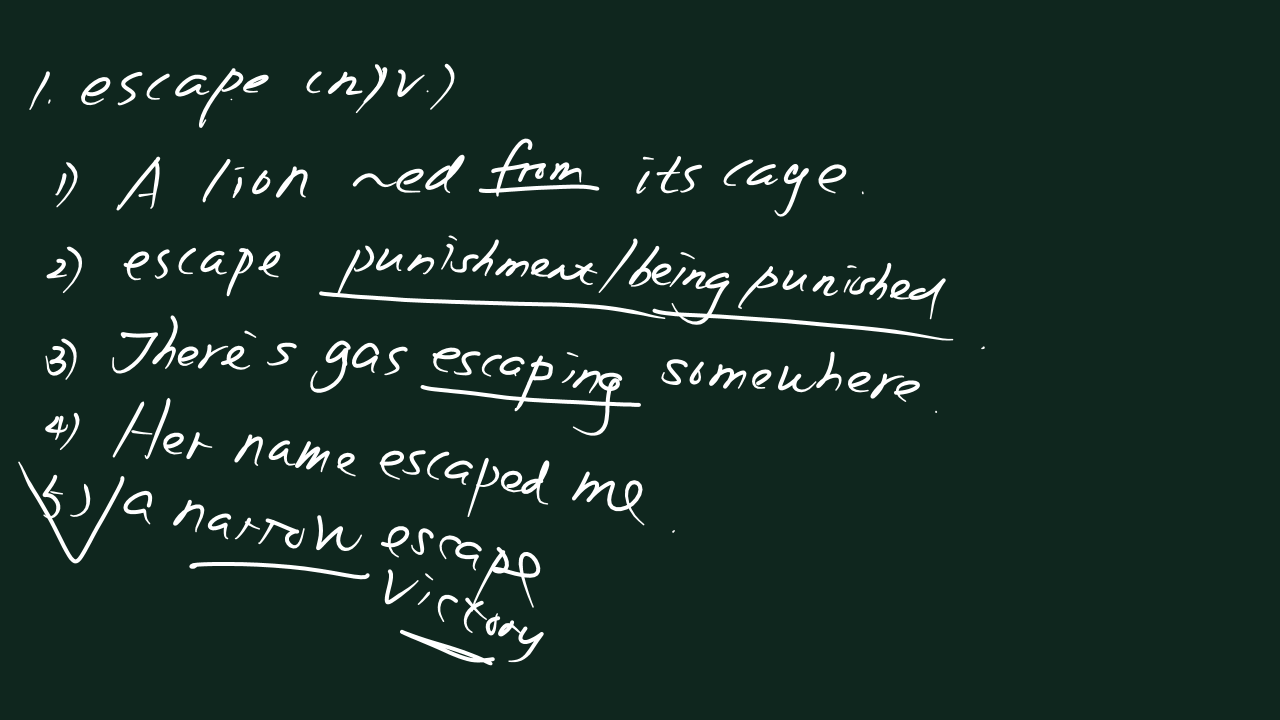 1. escape (n)v.)
1) A lion ~ed from its cage.
2) escape punishment/being punished.
3) There's gas escaping somewhere.
4) Her name escaped me.
5) a narrow escape
victory